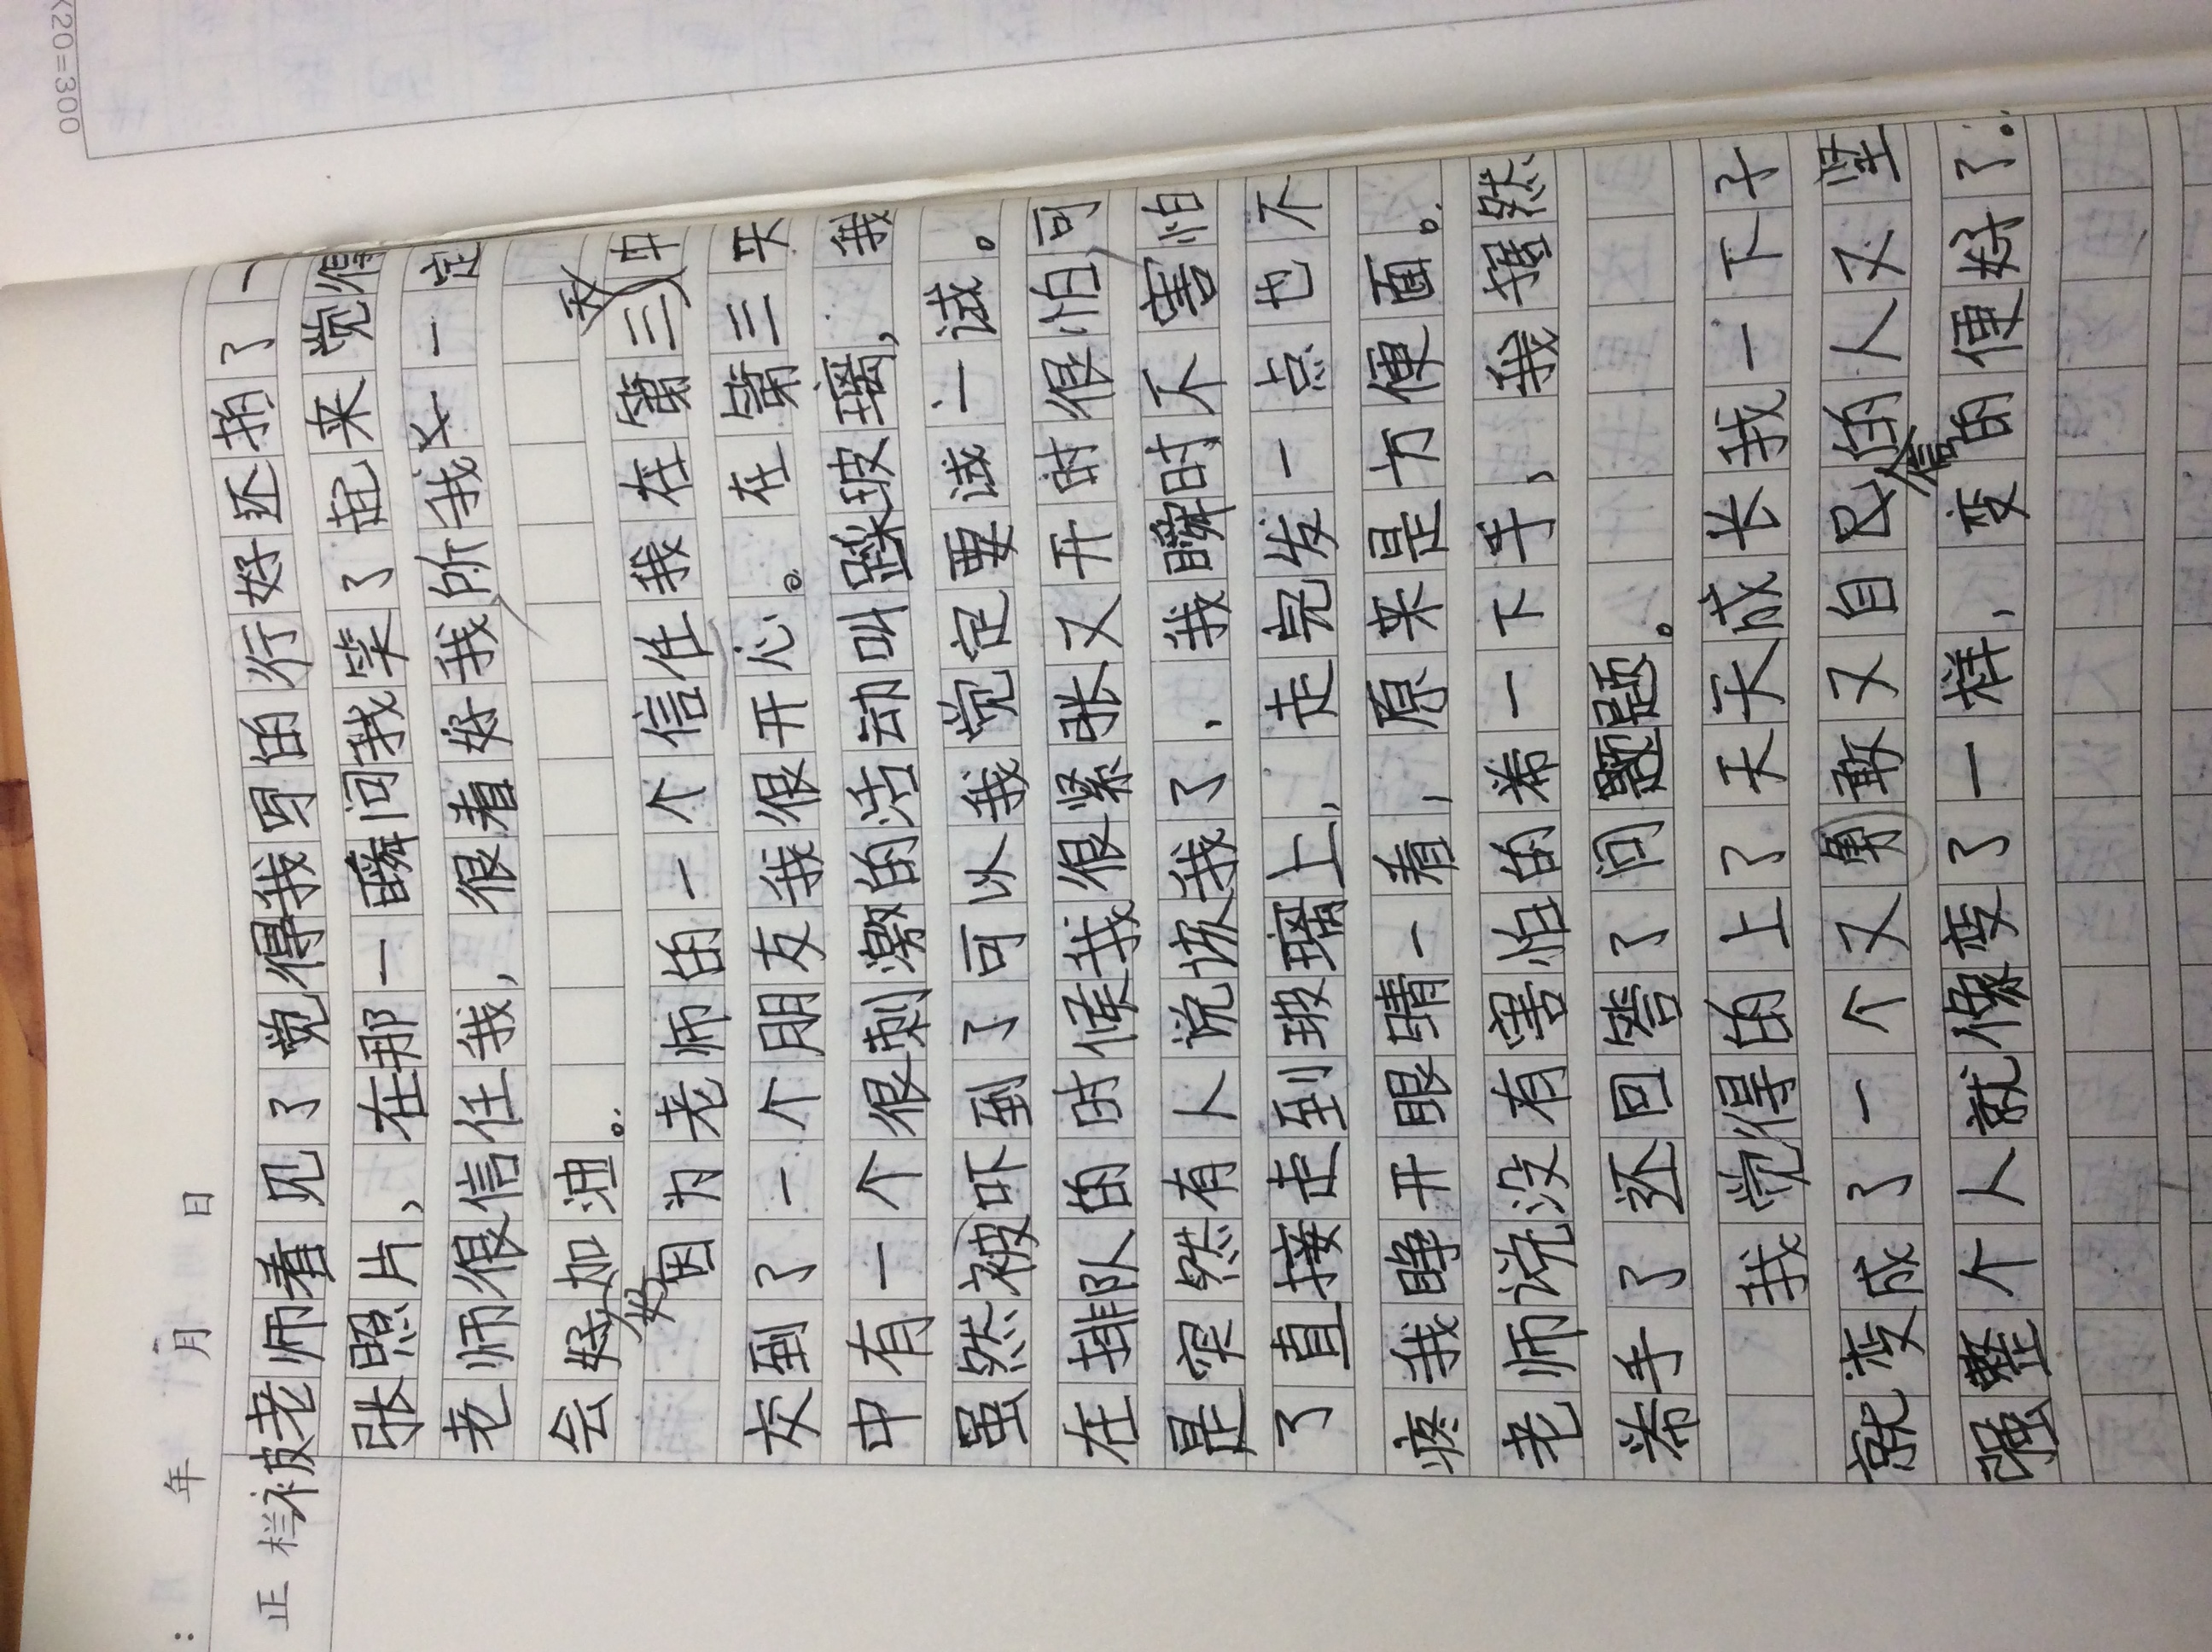 ×20=300
: 年 月 日
正 栏
被老师看见了觉得我写的行好还拍了一
张照片，在那一瞬间我笑了起来觉得
老师很信任我，很看好我我所我不一定
会好好加油。
因为老师的一个信任我在第三天中
交到了一个朋友我很开心。在第三天
中有一个很刺激的活动叫踩玻璃，我
虽然被吓到了可以我觉定要试一试。
在排队的时候我很紧张又开时很怕可
是突然有人说该我了，我瞬时不害怕
了直接走到玻璃上，走完发一点也不
疼我睁开眼睛一看，原来是方便面。
老师说没有害怕的举一下手，我居然
举手了还回答了问题。
我觉得的上了天天成长我一下子
就变成了一个又勇敢又自信的人又坚
强整个人就像变了一样，变的便好了。